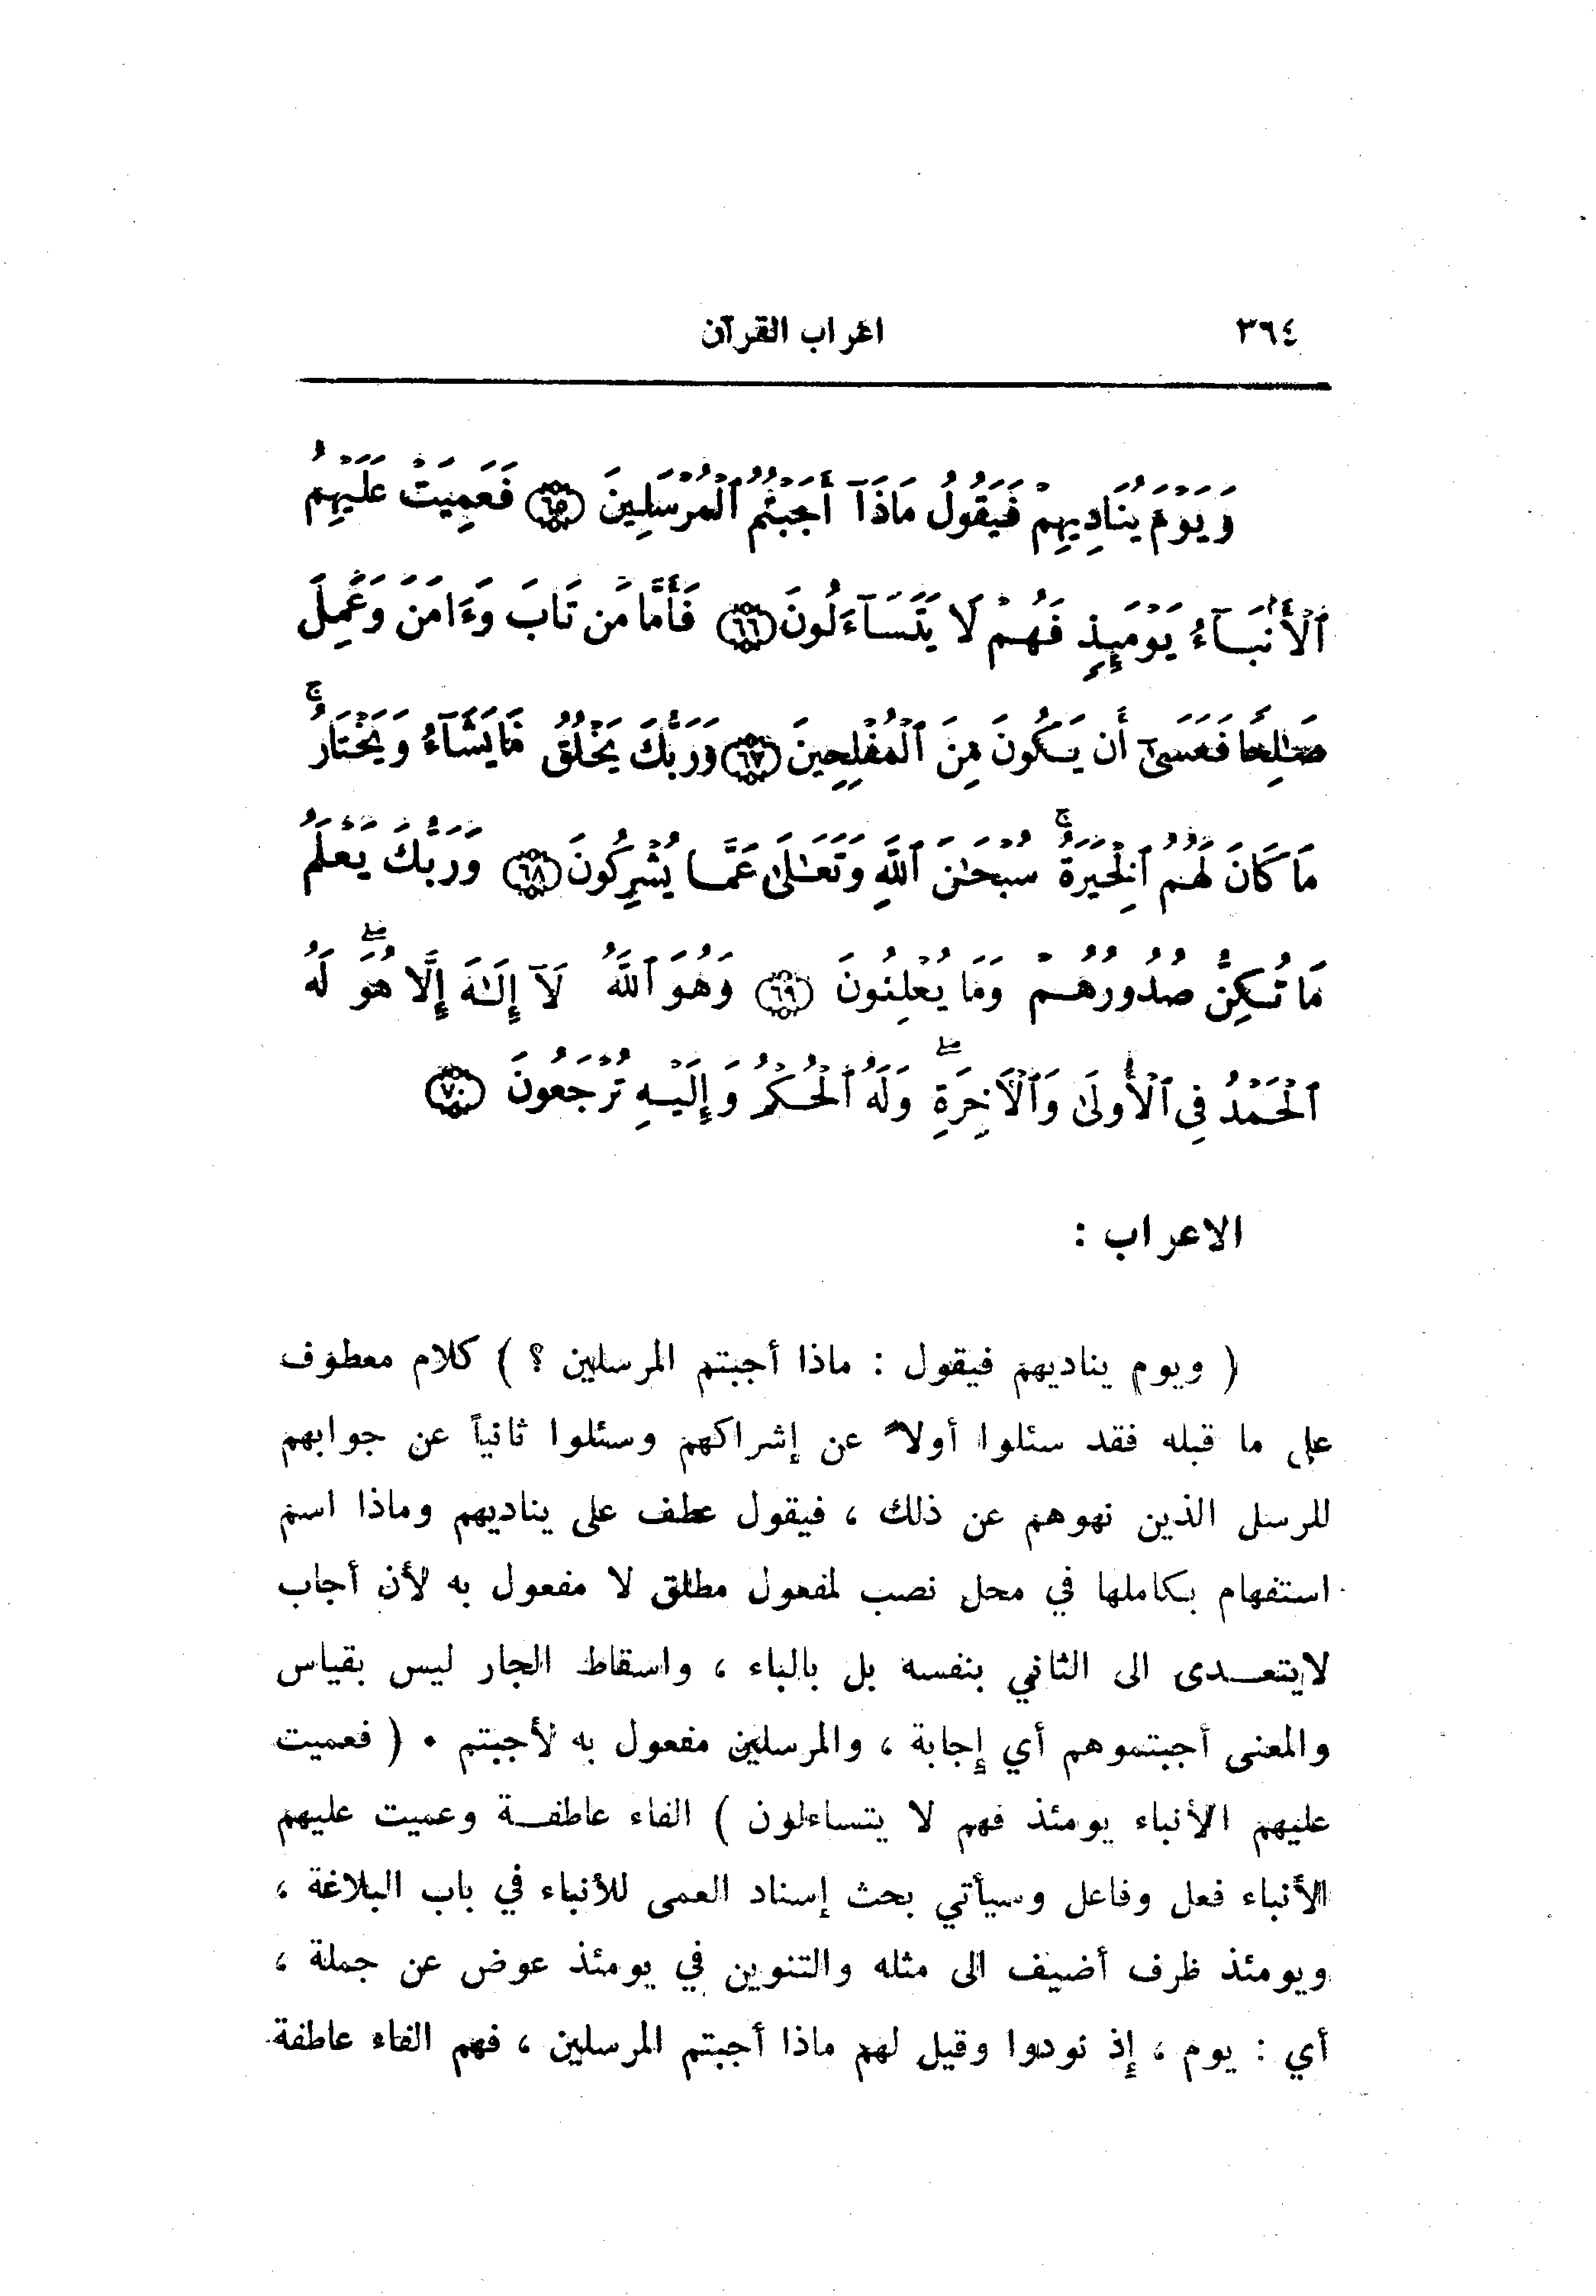 ٣٦٤
اعراب القرآن
وَيَوْمَ يُنَادِيهِمْ فَيَقُولُ مَاذَآ أَجَبْتُمُ ٱلْمُرْسَلِينَ ٦٥ فَعَمِيَتْ عَلَيْهِمُ
ٱلْأَنۢبَآءُ يَوْمَئِذٍ فَهُمْ لَا يَتَسَآءَلُونَ ٦٦ فَأَمَّا مَن تَابَ وَءَامَنَ وَعَمِلَ
صَـٰلِحًا فَعَسَىٰٓ أَن يَكُونَ مِنَ ٱلْمُفْلِحِينَ ٦٧ وَرَبُّكَ يَخْلُقُ مَا يَشَآءُ وَيَخْتَارُ ۚ
مَا كَانَ لَهُمُ ٱلْخِيَرَةُ ۚ سُبْحَـٰنَ ٱللَّهِ وَتَعَـٰلَىٰ عَمَّا يُشْرِكُونَ ٦٨ وَرَبُّكَ يَعْلَمُ
مَا تُكِنُّ صُدُورُهُمْ وَمَا يُعْلِنُونَ ٦٩ وَهُوَ ٱللَّهُ لَآ إِلَـٰهَ إِلَّا هُوَ ۖ لَهُ
ٱلْحَمْدُ فِى ٱلْأُولَىٰ وَٱلْآخِرَةِ ۖ وَلَهُ ٱلْحُكْمُ وَإِلَيْهِ تُرْجَعُونَ ٧٠
الاعراب :
( ويوم يناديهم فيقول : ماذا أجبتم المرسلين ؟ ) كلام معطوف
على ما قبله فقد سئلوا أولاً عن إشراكهم وسئلوا ثانياً عن جوابهم
للرسل الذين نهوهم عن ذلك ، فيقول عطف على يناديهم وماذا اسم
استفهام بكاملها في محل نصب لمفعول مطلق لا مفعول به لأن أجاب
لايتعــدى الى الثاني بنفسه بل بالباء ، واسقاط الجار ليس بقياس
والمعنى أجبتموهم أي إجابة ، والمرسلين مفعول به لأجبتم ٠ ( فعميت
عليهم الأنباء يومئذ فهم لا يتساءلون ) الفاء عاطفــة وعميت عليهم
الأنباء فعل وفاعل وسيأتي بحث إسناد العمى للأنباء في باب البلاغة ،
ويومئذ ظرف أضيف الى مثله والتنوين في يومئذ عوض عن جملة ،
أي : يوم ، إذ نودوا وقيل لهم ماذا أجبتم المرسلين ، فهم الفاء عاطفة